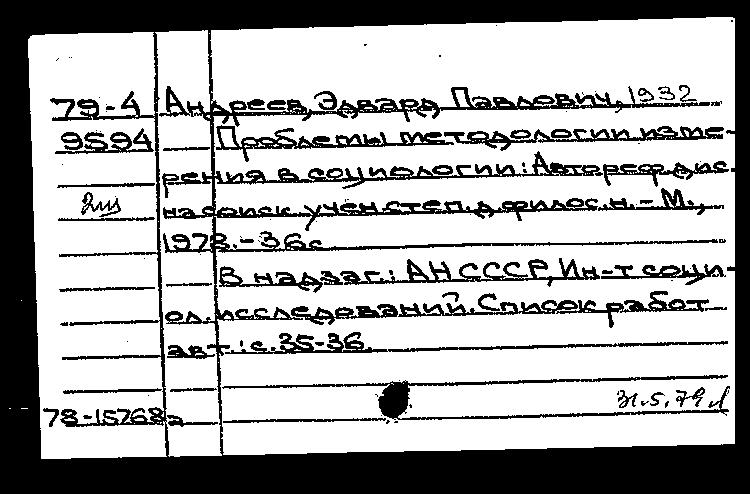 79-4 Андреев, Эдвард Павлович, 1932
9594 Проблемы методологии изме-
рения в социологии: Автореф. дис.
2 на соиск. учен. степ. д. филос. н. - М.,
1978. - 36 с
В надзаг.: АН СССР, Ин-т соци-
ол. исследований. Список работ
авт.: с. 35-36.
31.5.79
78-15768а